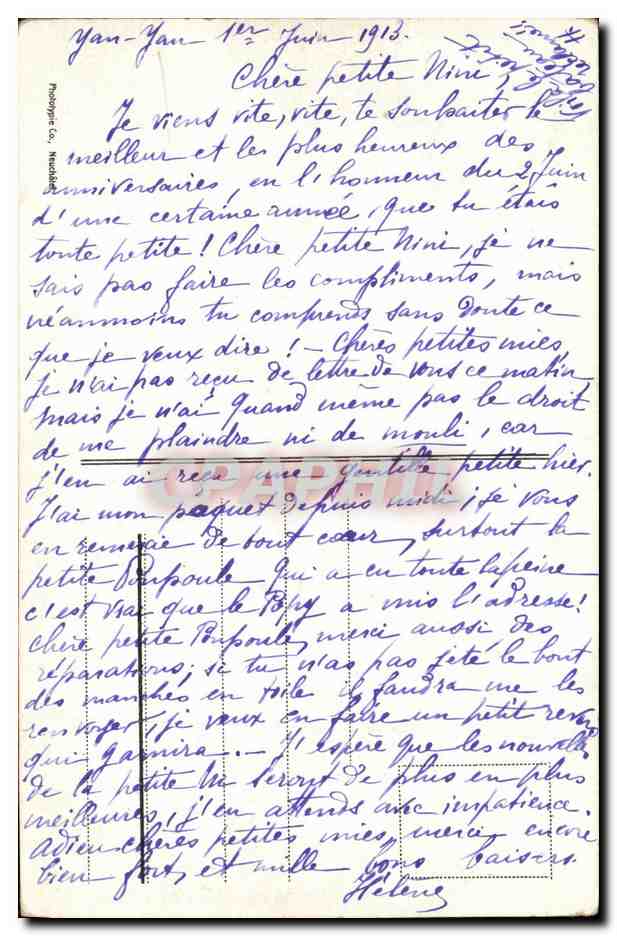 Yan-Yan 1er Juin 1913.
Chère petite Nini,
Je viens vite, vite, te souhaiter le
meilleur et les plus heureux des
anniversaires, en l'honneur du 2 Juin
d'une certaine année, que tu étais
toute petite! Chère petite Nini, je ne
sais pas faire les compliments, mais
néanmoins tu comprends sans doute ce
que je veux dire! – Chères petites mies,
je n'ai pas reçu de lettre de vous ce matin
mais je n'ai quand même pas le droit
de me plaindre ni de mouli, car
j'en ai reçu une gentille petite hier.
J'ai mon paquet depuis midi; je vous
en remercie de bout cœur, surtout la
petite Poupoule qui a eu toute la peine
c'est vrai que le Papy a mis l'adresse!
Chère petite Poupoule, merci aussi des
réparations; si tu n'as pas jeté le bout
des manches en toile il faudra me les
renvoyer, je veux en faire un petit
qui garnira. – J'espère que les nouvelles
de la petite seront de plus en plus
meilleures, j'en attends avec impatience.
Adieu chères petites mies, merci encore
bien fort, et mille bons baisers
Hélène
Phototypie Co., Neuchâtel
CPAPHIL